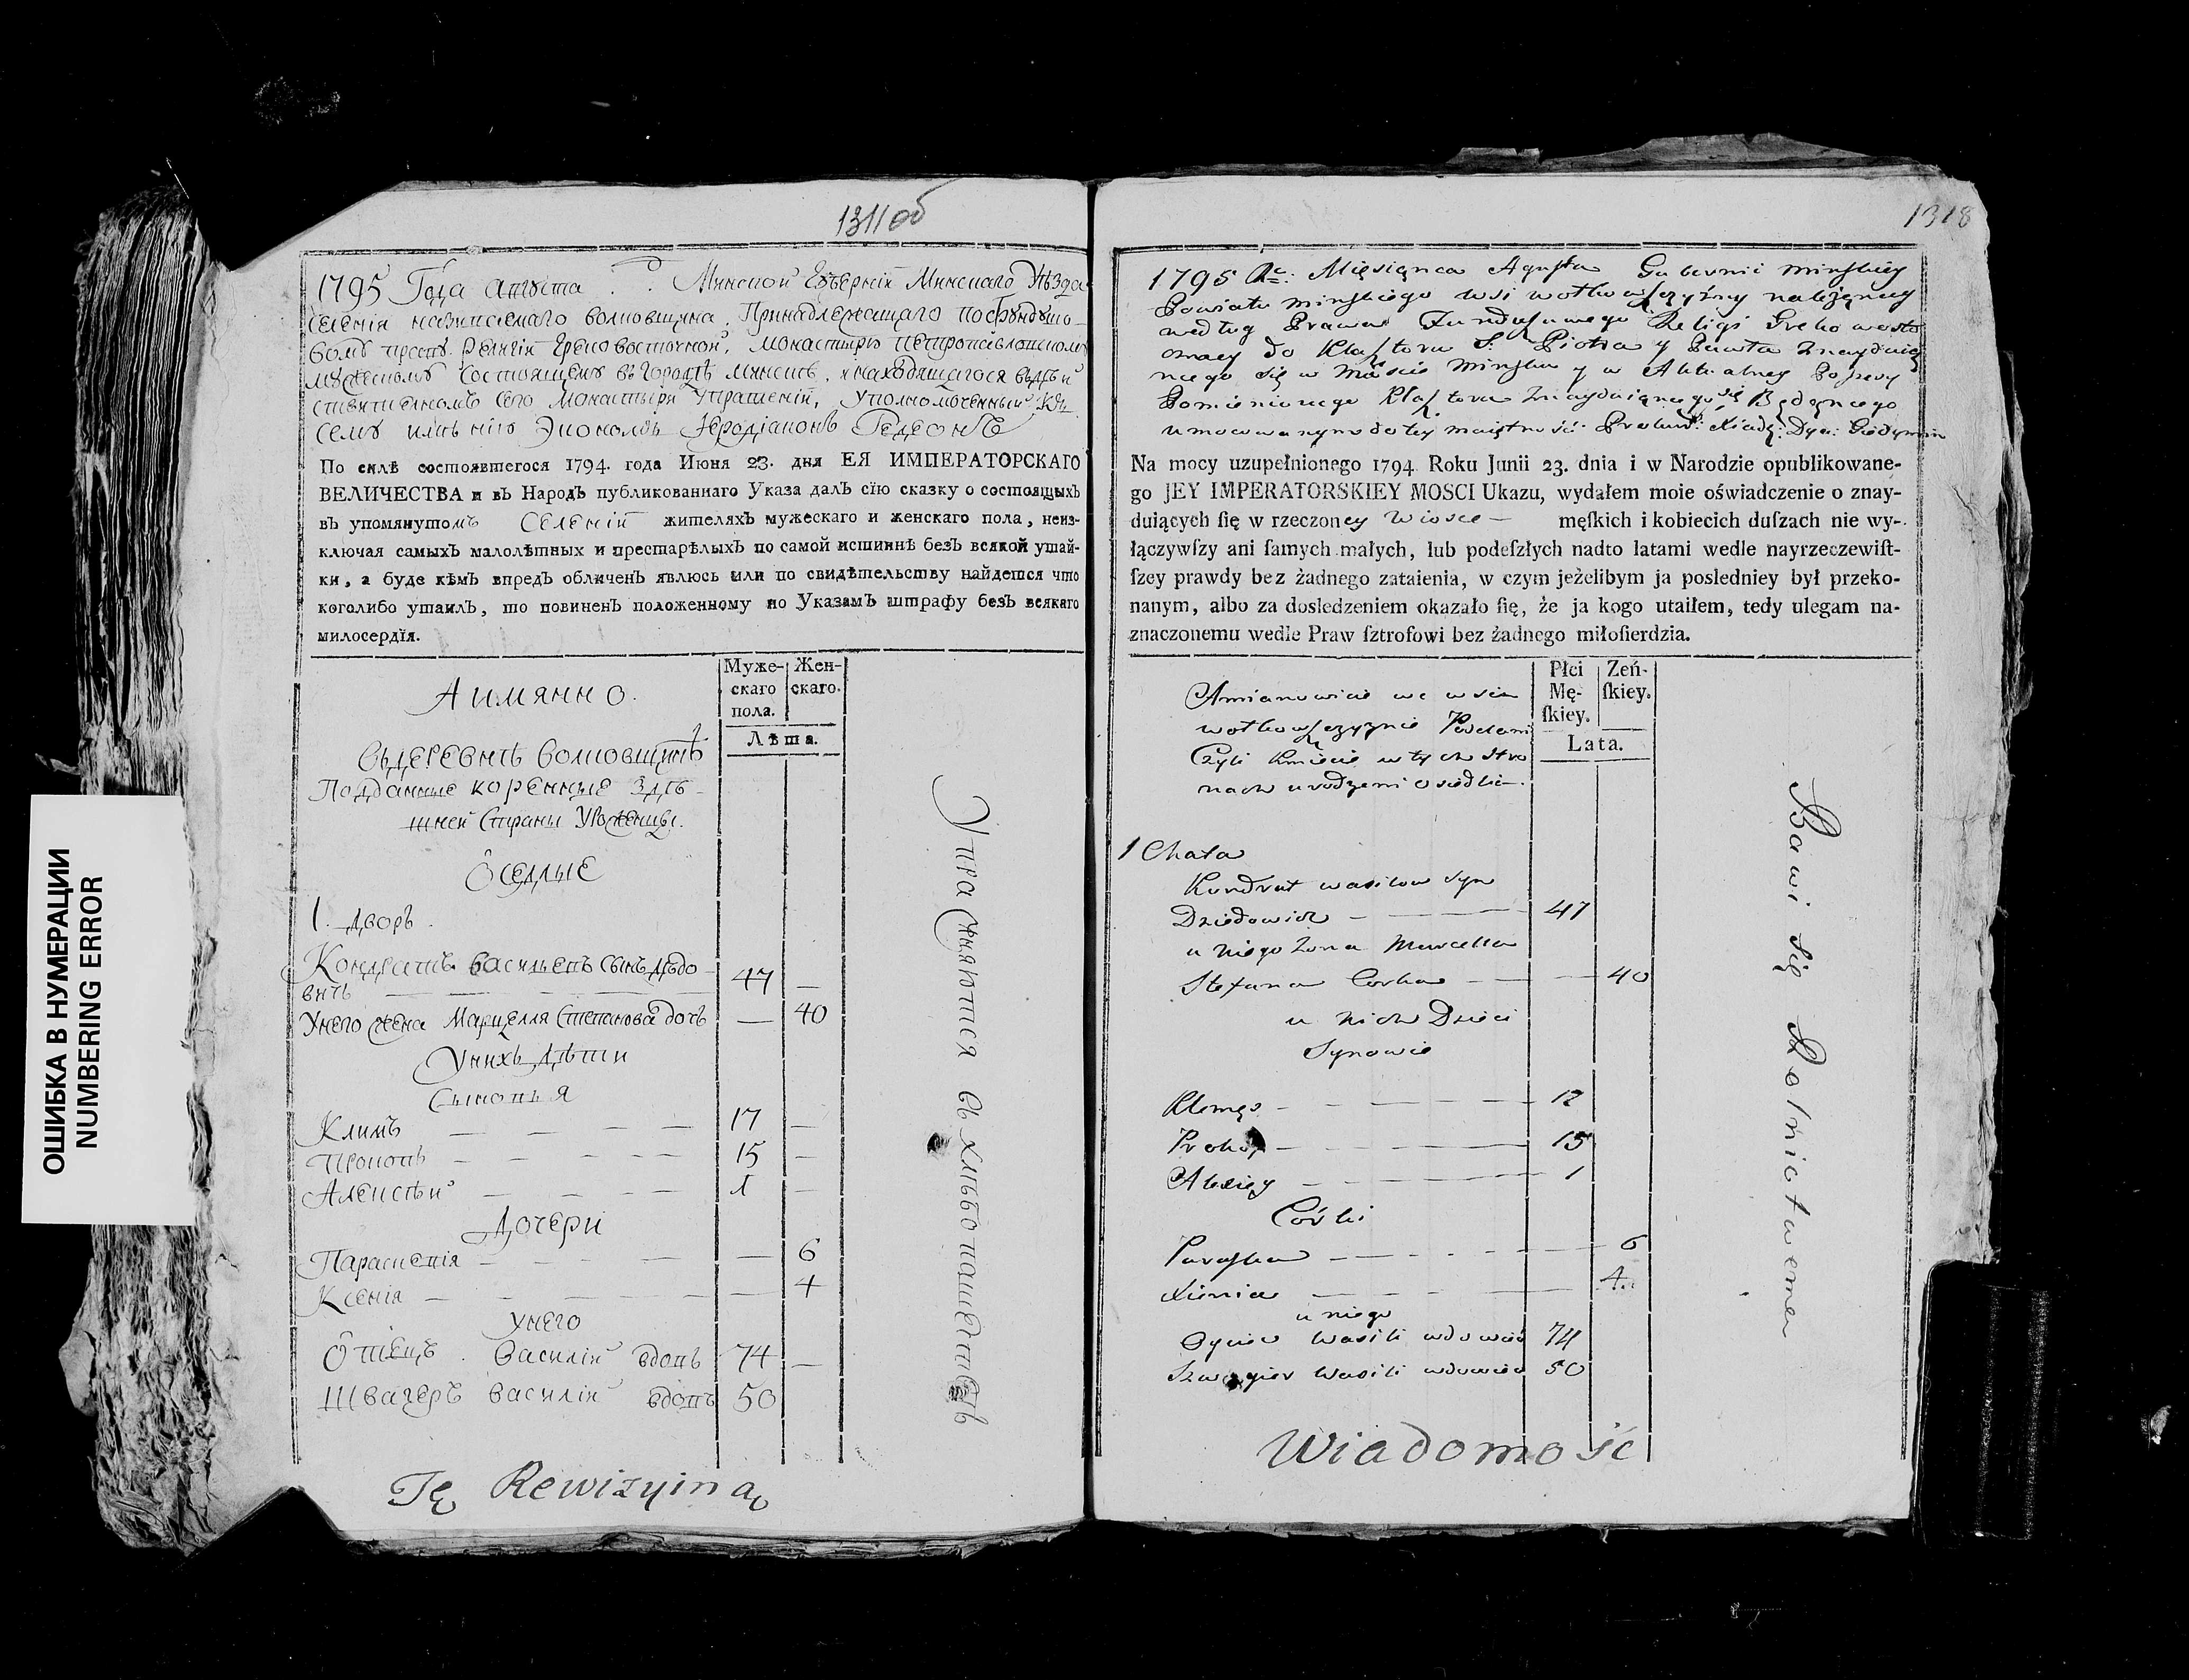 ОШИБКА В НУМЕРАЦИИ
NUMBERING ERROR
1311 об
1795 Года Августа Минской Губернїи Минскаго Уѣзда
селенїя называемаго Волковщина, Принадлежащаго по фундушо-
вому Религїи Греко восточной, монастырю Петропавловскому
мужескому состоящему въ Городѣ Минскѣ, и находящагося въ дѣй
ствительномъ сего Монастыря Управленїи, Уполномоченный къ
сему имѣнїю Экономъ Иеродїаконъ Гедеонъ
По силѣ состоявшегося 1794. года Июня 23. дня ЕЯ ИМПЕРАТОРСКАГО
ВЕЛИЧЕСТВА и въ Народъ публикованнаго Указа далъ сїю сказку о состоящыхъ
въ упомянутомъ Селенїи жителяхъ мужескаго и женскаго пола, неиз-
ключая самыхъ малолѣтныхъ и престарѣлыхъ по самой истиннѣ безъ всякой утай-
ки, а буде кѣмъ впредъ обличенъ явлюсь или по свидѣтельству найдется что
коголибо утаилъ, то повиненъ положенному по Указамъ штрафу безъ всякаго
милосердїя.
Муже-
скаго
пола.
Жен-
скаго.
Лѣта.
Аимянно.
Въ деревнѣ Волковщинѣ
Подданные коренные Здѣ-
шней Страны Уроженцы.
Оседлые
1. дворъ.
Кондратъ Васильевъ сынъ Дѣдо-
вичъ 47 —
Унего жена Марцелля Степанова дочь — 40
Унихъ дѣти
Сыновья
Климъ 17 —
Прокопъ 15 —
Алексѣй 1 —
Дочери
Параскевїя — 6
Ксенїя — 4
Унего
Отецъ Василїй вдовъ 74 —
Швагеръ Василїй вдовъ 50
Упражняются въ хлѣбопашествѣ
Tę Rewizyiną
1318
1795 Rc: Miesiąnca Agusta Gubernii Minskiey
Powiatu Minskiego wsi Wołkowszczyzny należąncey
według Prawa Funduszowego Religi Greko wosto
czney do Klasztoru S. Piotra y Pawła Znayduią
ncego się w Mieście Minsku y w Aktualney
Pomienionego Klasztoru Znayduiącego się Będąncego
umocowanym do tey maiętności
Na mocy uzupełnionego 1794 Roku Junii 23. dnia i w Narodzie opublikowane-
go JEY IMPERATORSKIEY MOSCI Ukazu, wydałem moie oświadczenie o znay-
duiących ſię w rzeczoney Wiosce — męſkich i kobiecich duſzach nie wy-
łączywſzy ani ſamych małych, lub podeſzłych nadto latami wedle nayrzeczewiſt-
ſzey prawdy bez żadnego zataienia, w czym jeżelibym ja posledniey był przeko-
nanym, albo za dosledzeniem okazało ſię, że ja kogo utaiłem, tedy ulegam na-
znaczonemu wedle Praw ſztrofowi bez żadnego miłoſierdzia.
Płci
Mę-
ſkiey.
Zeń-
ſkiey.
Lata.
Amianowicie we wsi
Wołkowszczyznie Poddani
Czyli Kmiecie w tych Stro
nach urodzeni Osiedli.
1 Chata
Kundrat Wasilow Syn
Dziedowicz — 47
u niego Żona Marcella
Stefana Corka — 40
u nich Dzieci
Synowie
Klemęs — 17
Prokop — 15
Alexiey — 1
Córki
Paraska — 6
Xienia — 4
u niego
Oyciec Wasili wdowiec 74
Szwagier Wasili wdowiec 50
Bawi się Rolnictwem
Wiadomość